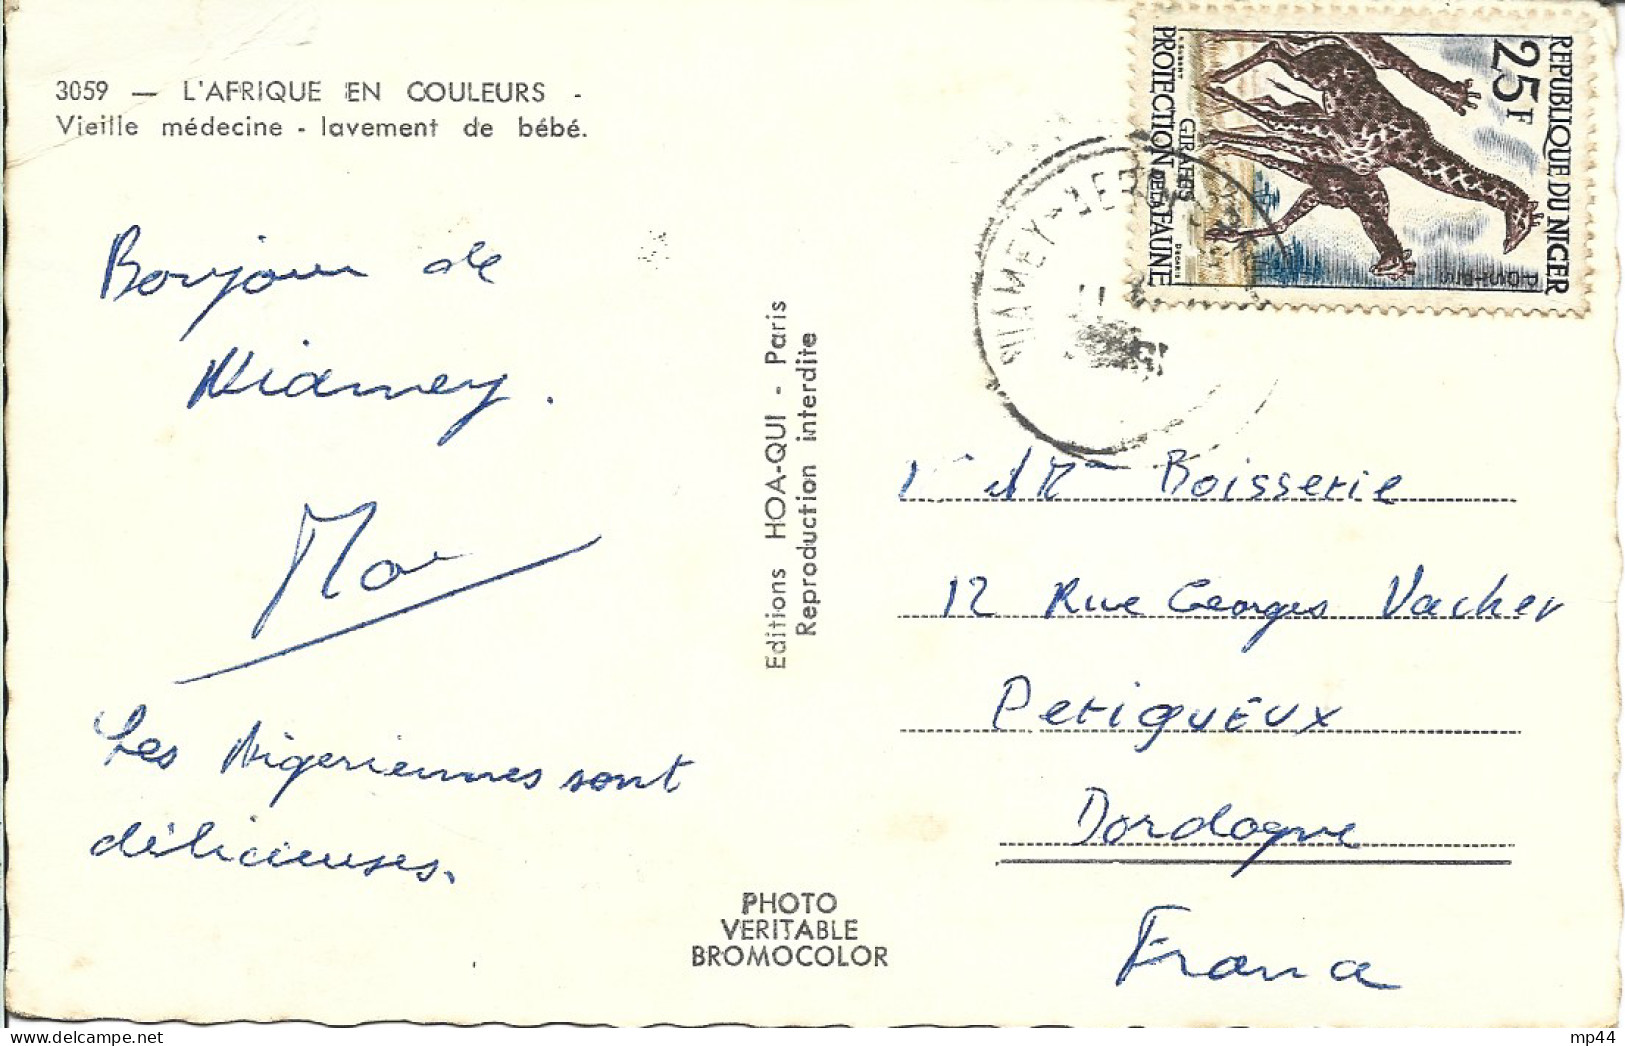 3059 — L'AFRIQUE EN COULEURS -
Vieille médecine - lavement de bébé.
Bonjour de
Niamey.
Les Nigeriennes sont
délicieuses.
Editions HOA-QUI - Paris
Reproduction interdite
PHOTO
VERITABLE
BROMOCOLOR
REPUBLIQUE DU NIGER
25F
GIRAFES
PROTECTION DE LA FAUNE
NIAMEY
et Mme Boisserie
12 Rue Georges Vacher
Perigueux
Dordogne
France
mp44